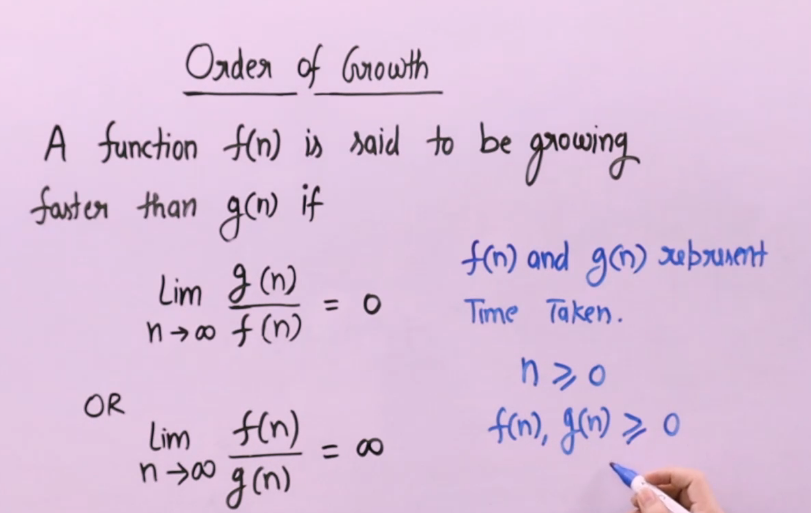 Order of Growth
A function f(n) is said to be growing
faster than g(n) if
Lim n→∞ g(n)/f(n) = 0
OR
Lim n→∞ f(n)/g(n) = ∞
f(n) and g(n) represent
Time Taken.
n ⩾ 0
f(n), g(n) ⩾ 0